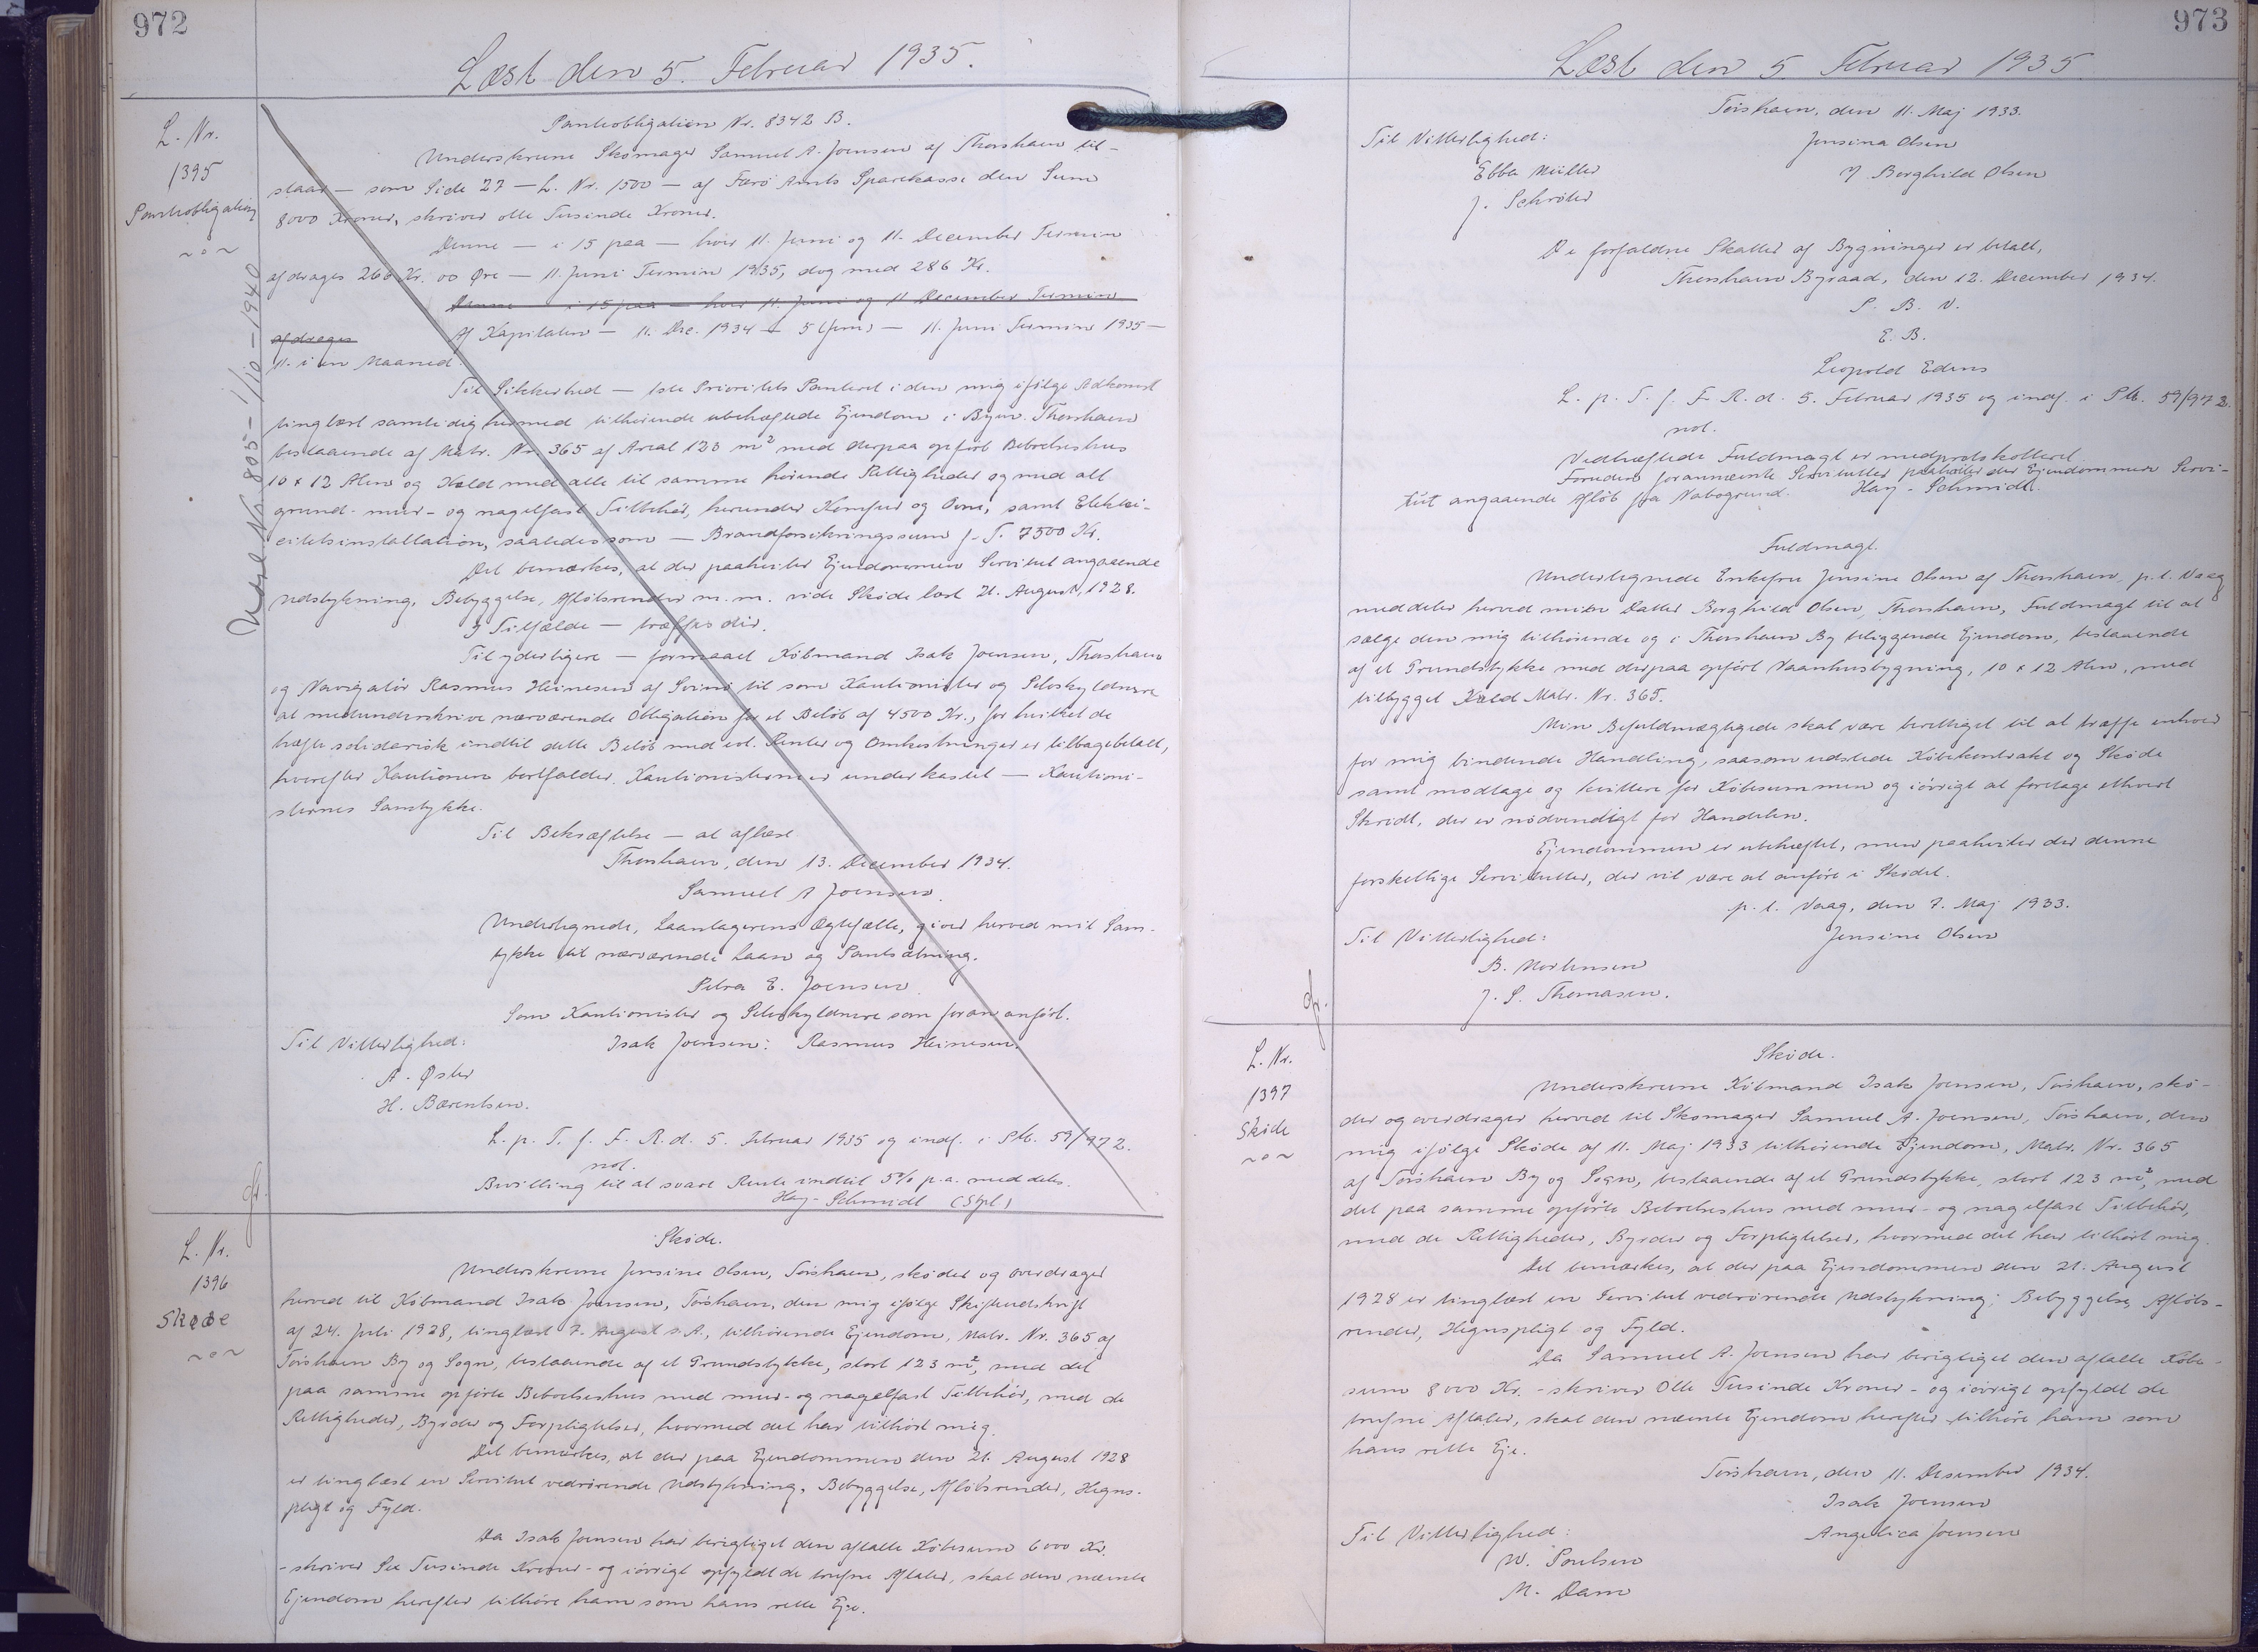 972
Læst den 5. Februar 1935.
L. Nr.
1395
Pantobligation
~o~
Udsl. Nr. 805 - 1/10 - 1940
Pantobligation Nr. 8342 B.
Underskrevne Skomager Samuel A. Joensen af Thorshavn til-
staar — som Side 27 — L. Nr. 1500 — af Færø Amts Sparekasse den Sum
8000 Kroner, skriver otte Tusinde Kroner.
Denne — i 15 paa — hver 11. Juni og 11. December Termin
afdrages 266 Kr. 00 Øre — 11. Juni Termin 1935, dog med 286 Kr.
Denne — i 15 paa — hver 11. Juni og 11 December Termin
afdrages
Af Kapitalen — 11. Dec. 1934 — 5 (fem) — 11. Juni Termin 1935 —
11. i en Maaned.
Til Sikkerhed — 1ste Prioritets Panteret i den mig ifølge Adkomst
tinglæst samtidig hermed tilhørende ubehæftede Ejendom i Byen Thorshavn
bestaaende af Matr. Nr. 365 af Areal 123 m² med derpaa opført Beboelseshus
10 x 12 Alen og Kæld med alle til samme hørende Rettigheder og med alt
grund- mur- og nagelfast Tilbehør, herunder Komfur og Ovne, samt Elektri-
citetsinstallation, saaledes som — Brandforsikringssum f. T. 7500 Kr.
Det bemærkes, at der paahviler Ejendommen Servitut angaaende
Udstykning, Bebyggelse, Afløbsrender m. m. vide Skøde læst 21. August, 1928.
I Tilfælde — træffes der.
Til yderligere — formaaet Købmand Isak Joensen, Thorshavn
og Navigatør Rasmus Heinesen af Svinø til som Kautionister og Selvskyldnere
at medunderskrive nærværende Obligation for et Beløb af 4500 Kr., for hvilket de
hæfte solidarisk indtil dette Beløb med evt. Renter og Omkostninger er tilbagebetalt,
hvorefter Kautionen bortfalder. Kautionisterne er underkastet — Kautioni-
sternes Samtykke.
Til Bekræftelse — at aflæse
Thorshavn, den 13. December 1934.
Samuel A Joensen.
Undertegnede, Laantagerens Ægtefælle, giver herved mit Sam-
tykke til nærværende Laan og Pantsætning.
Petra E. Joensen.
Som Kautionister og Selvskyldnere som foran anført.
Til Vitterlighed:
Isak Joensen: Rasmus Heinesen.
A. Øster
H. Bærentsen.
L. p. T. f. F. R. d. 5. Februar 1935 og indf. i Ptb. 59/972.
not.
Bevilling til at svare Rente indtil 5% p.a. meddeles.
Hay-Schmidt (Sgl.)
gfr.
L. Nr.
1396
Skøde
~o~
Skøde.
Underskrevne Jensine Olsen, Tórshavn, skøder og overdrager
herved til Købmand Isak Joensen, Tórshavn, den mig ifølge Skifteudskrift
af 24. Juli 1928, tinglæst 7. August s. A., tilhørende Ejendom, Matr. Nr. 365 af
Tórshavn By og Sogn, bestaaende af et Grundstykke, stort 123 m², med det
paa samme opførte Beboelseshus med mur- og nagelfast Tilbehør, med de
Rettigheder, Byrder og Forpligtelser, hvormed det har tilhørt mig.
Det bemærkes, at der paa Ejendommen den 21. August 1928
er tinglæst en Servitut vedrørende Udstykning, Bebyggelse, Afløbsrender, Hegns-
pligt og Fyld.
Da Isak Joensen har berigtiget den aftalte Købesum 6000 Kr.
- skriver Sex Tusinde Kroner - og iøvrigt opfyldt de trufne Aftaler, skal den nævnte
Ejendom herefter tilhøre ham som hans rette Eje.
973
Læst den 5. Februar 1935.
Tórshavn, den 11. Maj 1933.
Til Vitterlighed:
Jensina Olsen
Ebba Müller
J. Schrøter
Borghild Olsen
De forfaldne Skatter af Bygninger er betalt,
Thorshavn Byraad, den 12. December 1934.
P. B. V.
E. B.
Leopold Edens
L. p. T. f. F. R. d. 5. Februar 1935 og indf. i Ptb. 59/972.
not.
Vedhæftede Fuldmagt er medprotokolleret.
Foruden forannævnte Servitutter paahviler der Ejendommen Servi-
tut angaaende Afløb fra Nabogrund. Hay-Schmidt.
Fuldmagt.
Undertegnede Enkefru Jensine Olsen af Thorshavn, p. t. Vaag
meddeler herved min Datter Borghild Olsen, Thorshavn, Fuldmagt til at
sælge den mig tilhørende og i Thorshavn By beliggende Ejendom, bestaaende
af et Grundstykke med derpaa opført Vaanhusbygning, 10 x 12 Alen, med
tilbygget Kæld Matr. Nr. 365.
Min Befuldmægtigede skal være berettiget til at træffe enhver
for mig bindende Handling, saasom udstede Købekontrakt og Skøde
samt modtage og kvittere for Købesummen og iøvrigt at foretage ethvert
Skridt, der er nødvendigt for Handelen.
Ejendommen er ubehæftet, men paahviler der denne
forskellige Servitutter, der vil være at anføre i Skødet.
p. t. Vaag, den 7. Maj 1933.
Til Vitterlighed:
Jensine Olsen
B. Mortensen
J. P. Thomasen.
gfr.
L. Nr.
1397
Skøde
~o~
Skøde.
Underskrevne Købmand Isak Joensen, Tórshavn, skø-
der og overdrager herved til Skomager Samuel A. Joensen, Tórshavn, den
mig ifølge Skøde af 11. Maj 1933 tilhørende Ejendom, Matr. Nr. 365
af Tórshavn By og Sogn, bestaaende af et Grundstykke, stort 123 m², med
det paa samme opførte Beboelseshus med mur- og nagelfast Tilbehør,
med de Rettigheder, Byrder og Forpligtelser, hvormed det har tilhørt mig.
Det bemærkes, at der paa Ejendommen den 21. August
1928 er tinglæst en Servitut vedrørende Udstykning, Bebyggelse, Afløbs-
render, Hegnspligt og Fyld.
Da Samuel A. Joensen har berigtiget den aftalte Købe-
sum 8000 Kr. - skriver Otte Tusinde Kroner - og iøvrigt opfyldt de
trufne Aftaler, skal den nævnte Ejendom herefter tilhøre ham som
hans rette Eje.
Tórshavn, den 11. Desember 1934.
Isak Joensen
Til Vitterlighed:
Angelica Joensen
W. Poulsen
M. Dam